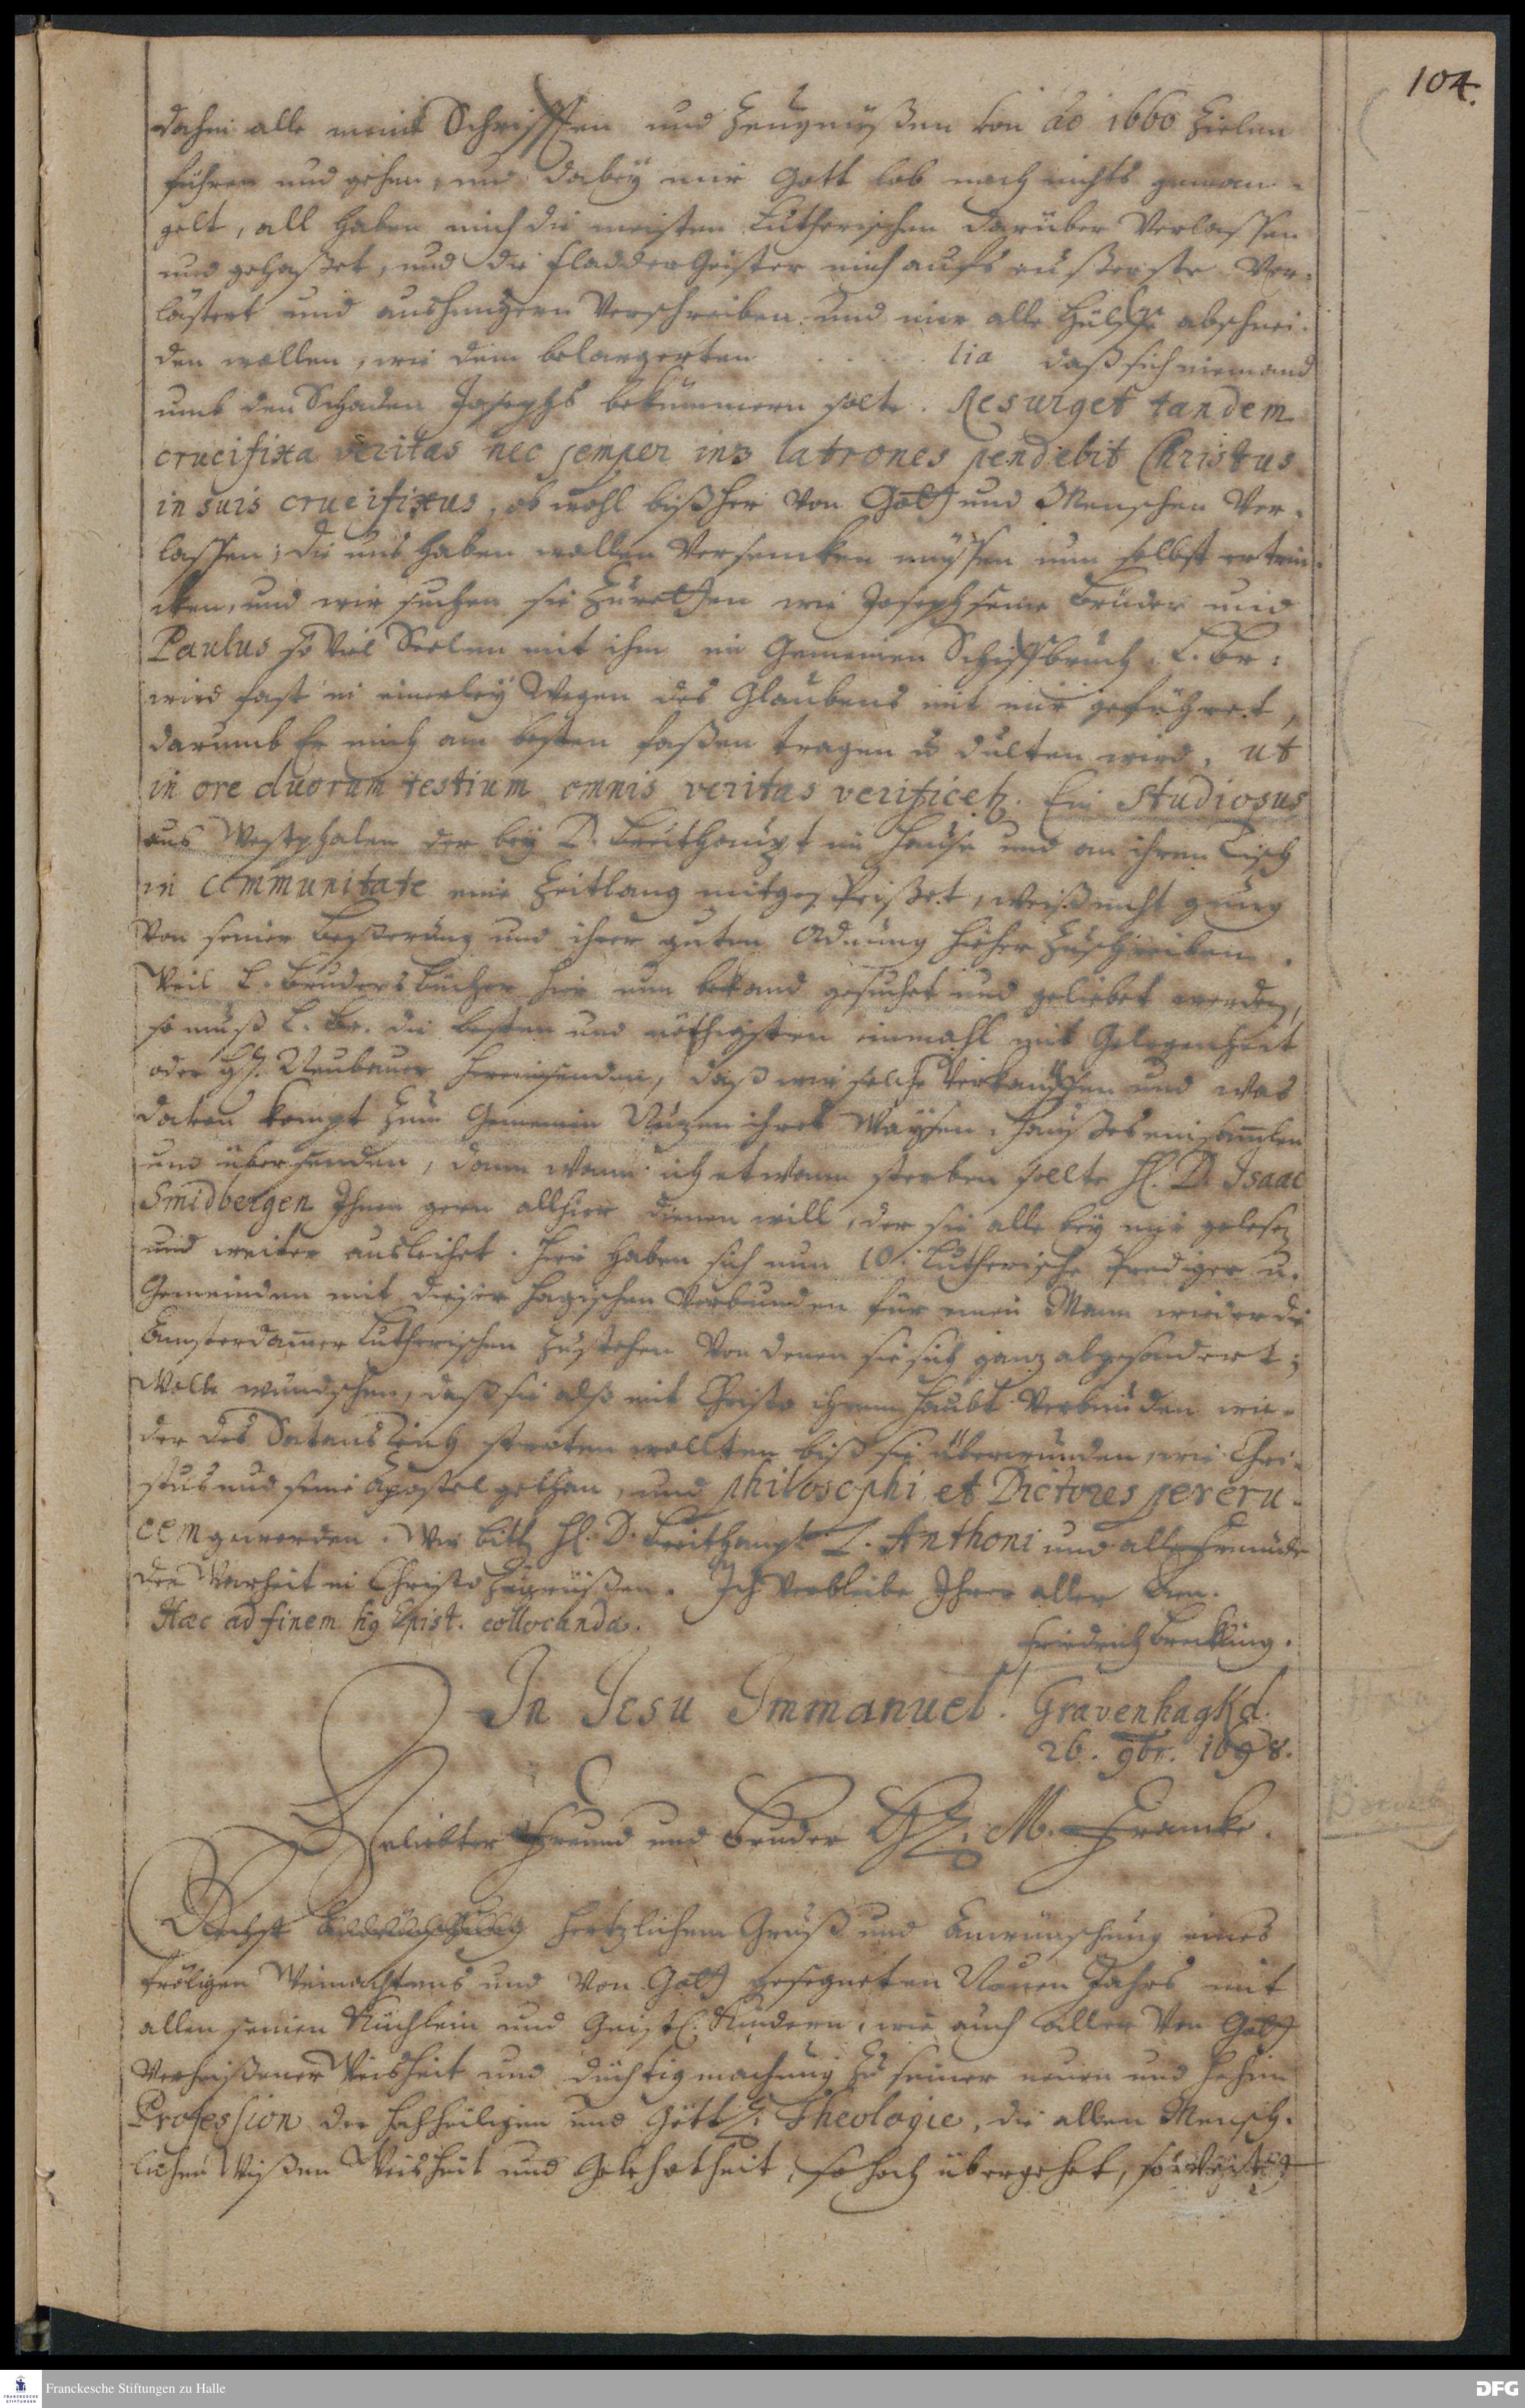 104.
dahin alle meine Schrifften und Zeugnüßen von ao 1660 Zielen
führen und gehen, und dabey mir Gott lob noch nichts geman-
gelt, all haben mich die meisten Lutherischen darüber Verlassen
und gehaßet, und die fladder Geister mich aufs eußerste Ver-
lästert und aushungern Verschreiben und mir alle Hülffe abschnei-
den wollen, wie dem belagerten . . . . lia daß sich niemand
umb den Schaden Josephs bekümmern solte. Resurget tandem
crucifixa veritas nec semper inz latrones pendebit Christus
in suis crucifixus, ob wohl bißher von Gott und Menschen Ver-
lassen; die uns haben wollen Versencken müssen nun selbst ertrin-
cken, und wir suchen sie zu retten wie Joseph seine Brüder und
Paulus so viel Seelen mit ihm im Gemeinen Schiffbruch. L. Br:
wird fast in einerley Wegen des Glaubens mit mir geführet,
darumb Er mich am besten faßen tragen u dulten wird, ut
in ore duorum testium omnis veritas verificetz. Ein Studiosus
aus Westphalen der bey D. Breithaupt im Hause und an ihren Tisch
in communitate eine Zeitlang mitgespeißet, weiß nicht gnug
Von seiner Beßerung und ihrer guten Ordnung hieher zu schreiben.
Weil L. Bruders Bücher hier nun bekand gesuchet und geliebet werden,
so muß L. Br. die besten und nöthigsten einmahl mit Gelegenheit
oder H. Neubauer hereinsenden, daß wir solche Verkauffen und was
davon kompt zum Gemeinen Nuzen ihres Waysen-Haußes einsamlen
und übersenden, dann wann ich etwann sterben sollte H. D. Isaac
Smidbergen Ihnen gern allhier dienen will, der sie alle bey mir gelesen
und weiter ausleihet. Hier haben sich nun 10. Lutherische Prediger u.
Gemeinden mit dieser Hagischen Verbunden für einen Mann wieder die
Amsterdamer Lutherischen zu stehen Von denen sie sich ganz abgesondert;
Wolte wündschen, daß sie also mit Christo ihrem Haubt Verbunden wie-
der des Satans Reich streiten wollten biß sie überwunden, wie Chri-
stus und seine Apostel gethan, und philosophi et Doctores per cru-
cem geworden. Wir bitte H. D. Breithaupt L. Anthoni und alle Freunde
der Warheit in Christo zu grüßen. Ich Verbleibe Ihrer aller Am.
Hæc ad finem hg Epist. collocanda.
Friedrich Breckling.
In Jesu Immanuel! Gravenhag d.
26. 9br. 1698.
Geliebter Freund und Bruder H. M. Francke.
Nechst hertzlichem Gruß und Anwünschung eines
frölichen Weinachtens und Von Gott gesegneten Neuen Jahrs mit
allen seinen Küchlein und Geistl. Kindern, wie auch aller Von Gott
Verheißener Weisheit und düchtigmachung zu seiner neuen und hohen
Profession der hochheiligen und Göttl. Theologie, die allen Mensch-
lichen Wißen Weisheit und Gelehrtheit, so hoch übergehet, so weit
Franckesche Stiftungen zu Halle
DFG